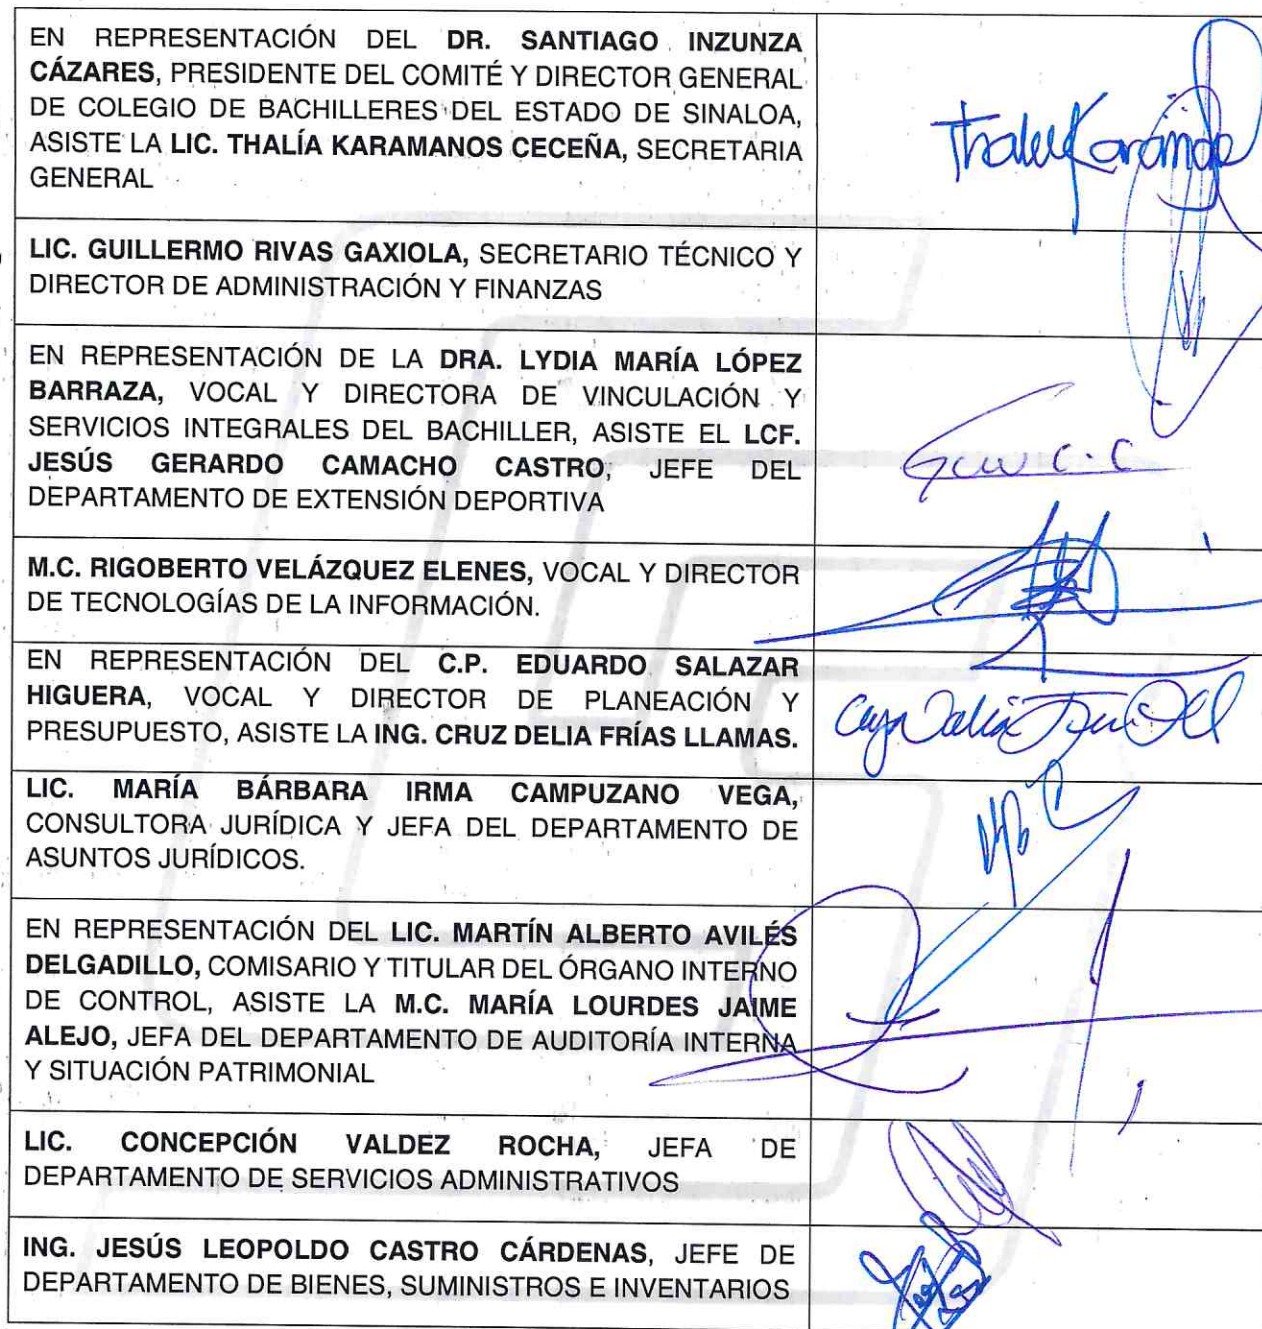 EN REPRESENTACIÓN DEL DR. SANTIAGO INZUNZA
CÁZARES, PRESIDENTE DEL COMITÉ Y DIRECTOR GENERAL
DE COLEGIO DE BACHILLERES DEL ESTADO DE SINALOA,
ASISTE LA LIC. THALÍA KARAMANOS CECEÑA, SECRETARIA
GENERAL
LIC. GUILLERMO RIVAS GAXIOLA, SECRETARIO TÉCNICO Y
DIRECTOR DE ADMINISTRACIÓN Y FINANZAS
EN REPRESENTACIÓN DE LA DRA. LYDIA MARÍA LÓPEZ
BARRAZA, VOCAL Y DIRECTORA DE VINCULACIÓN Y
SERVICIOS INTEGRALES DEL BACHILLER, ASISTE EL LCF.
JESÚS GERARDO CAMACHO CASTRO, JEFE DEL
DEPARTAMENTO DE EXTENSIÓN DEPORTIVA
M.C. RIGOBERTO VELÁZQUEZ ELENES, VOCAL Y DIRECTOR
DE TECNOLOGÍAS DE LA INFORMACIÓN.
EN REPRESENTACIÓN DEL C.P. EDUARDO SALAZAR
HIGUERA, VOCAL Y DIRECTOR DE PLANEACIÓN Y
PRESUPUESTO, ASISTE LA ING. CRUZ DELIA FRÍAS LLAMAS.
LIC. MARÍA BÁRBARA IRMA CAMPUZANO VEGA,
CONSULTORA JURÍDICA Y JEFA DEL DEPARTAMENTO DE
ASUNTOS JURÍDICOS.
EN REPRESENTACIÓN DEL LIC. MARTÍN ALBERTO AVILÉS
DELGADILLO, COMISARIO Y TITULAR DEL ÓRGANO INTERNO
DE CONTROL, ASISTE LA M.C. MARÍA LOURDES JAIME
ALEJO, JEFA DEL DEPARTAMENTO DE AUDITORÍA INTERNA
Y SITUACIÓN PATRIMONIAL
LIC. CONCEPCIÓN VALDEZ ROCHA, JEFA DE
DEPARTAMENTO DE SERVICIOS ADMINISTRATIVOS
ING. JESÚS LEOPOLDO CASTRO CÁRDENAS, JEFE DE
DEPARTAMENTO DE BIENES, SUMINISTROS E INVENTARIOS